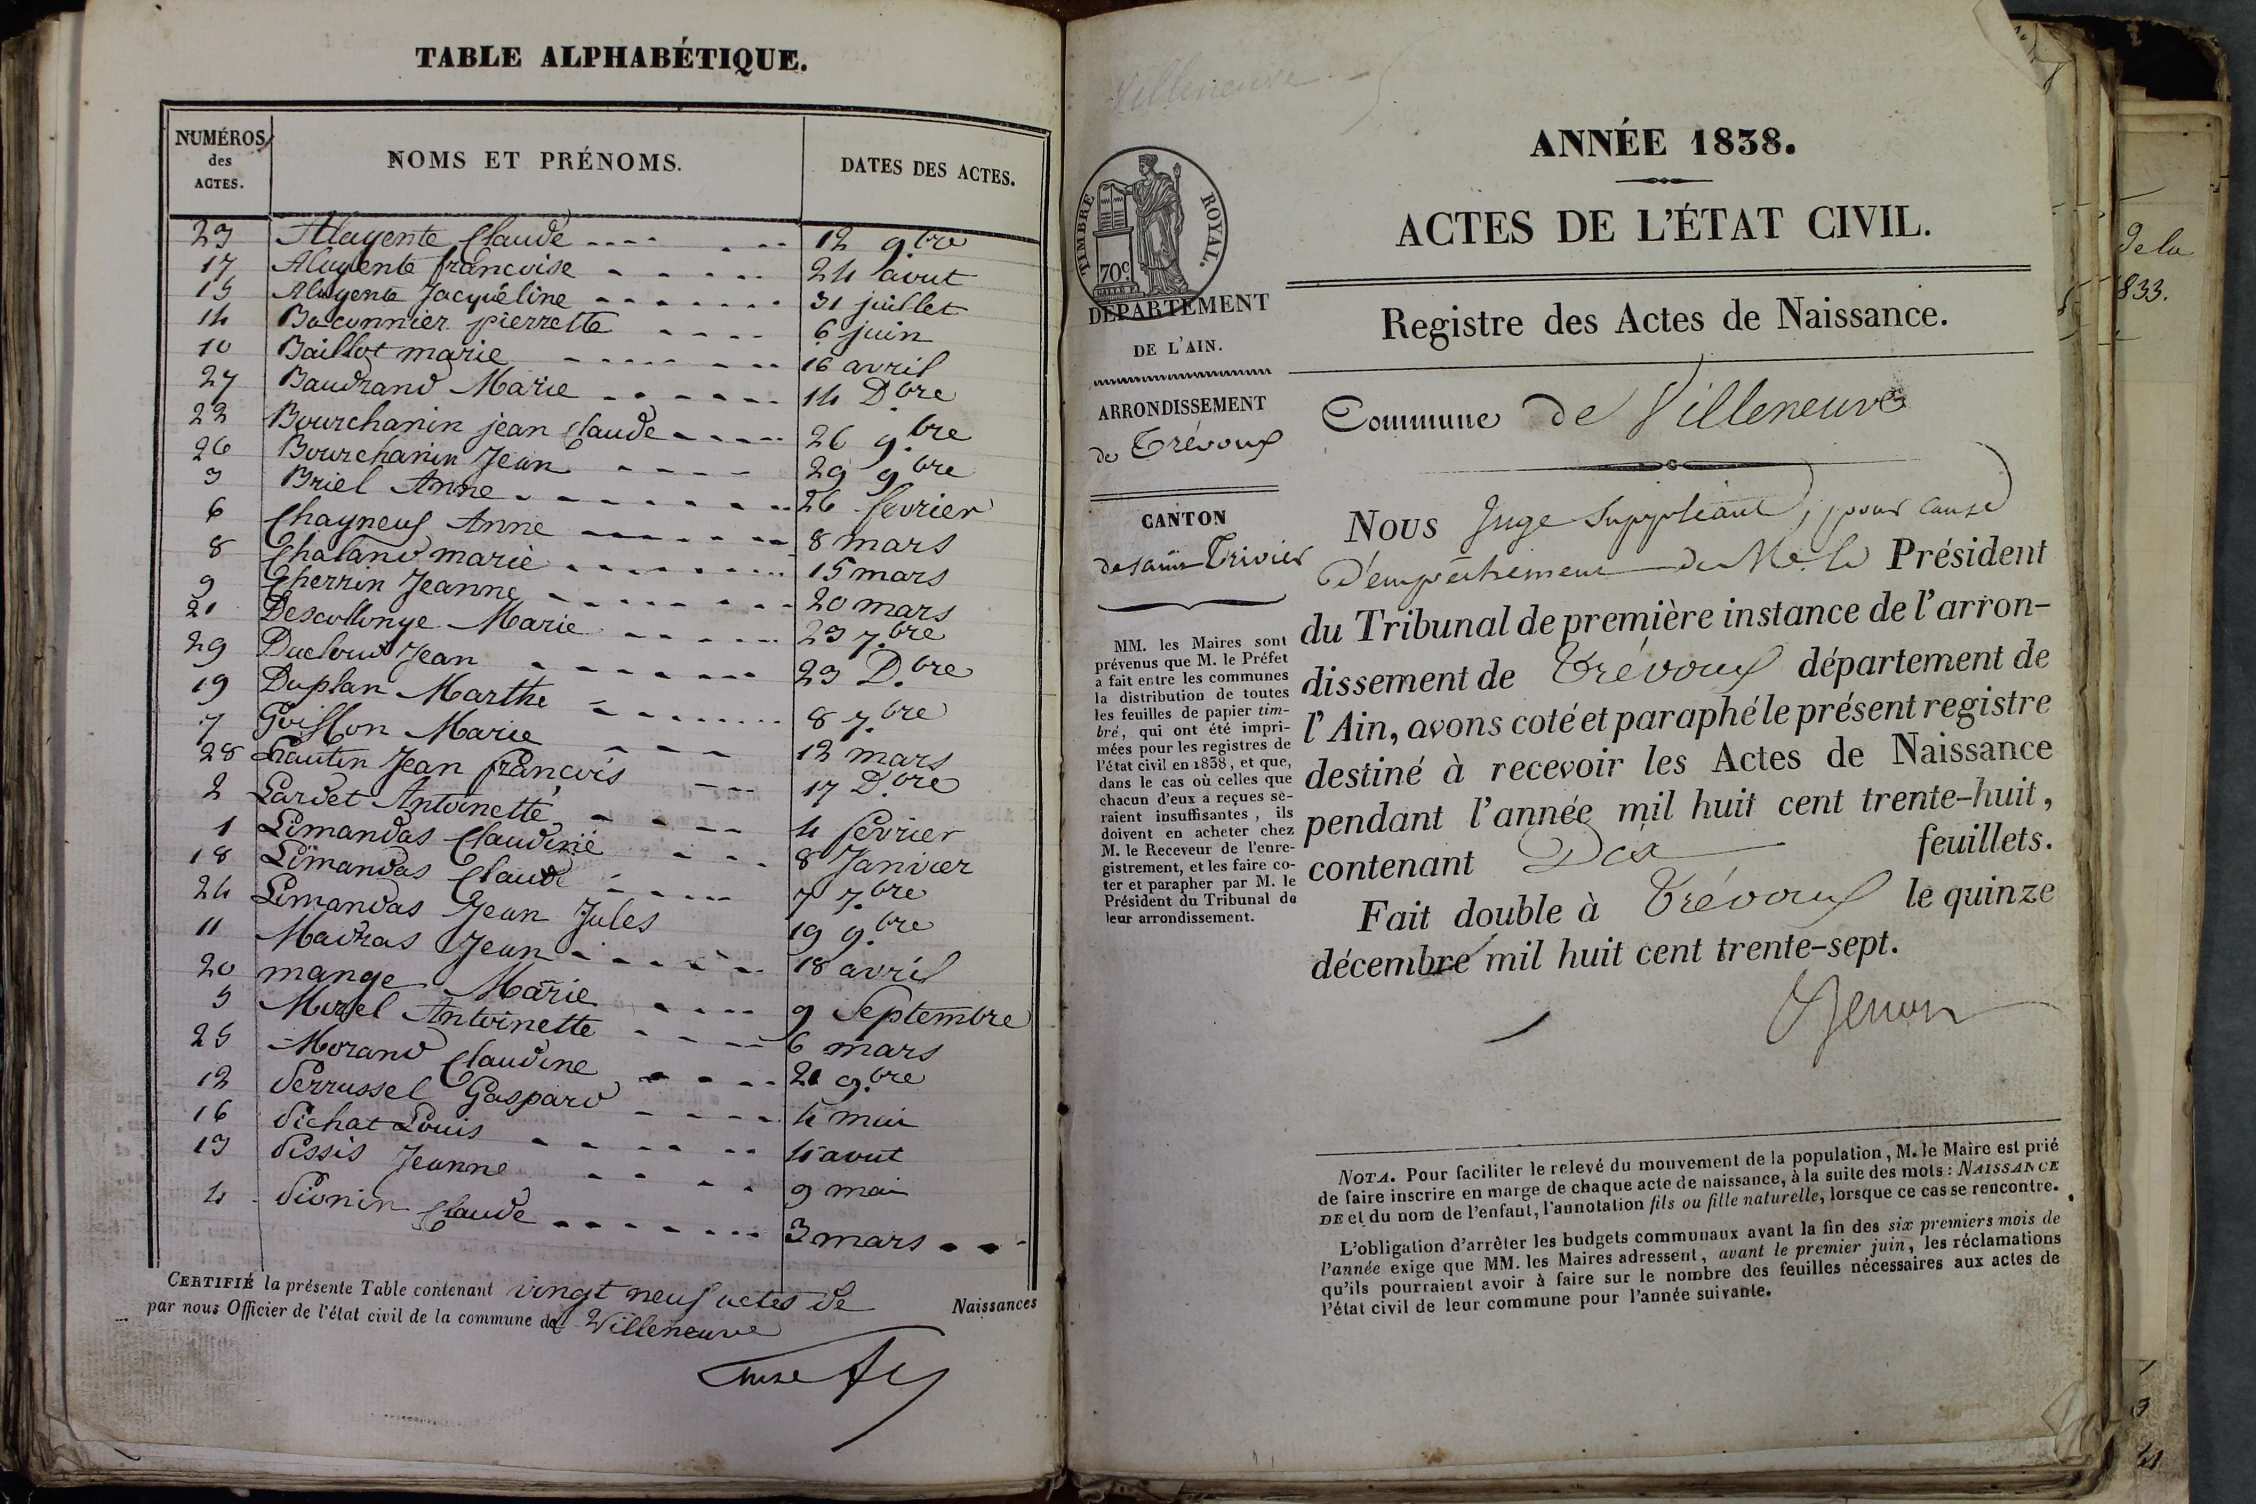 TABLE ALPHABÉTIQUE.
NUMÉROS des ACTES. NOMS ET PRÉNOMS. DATES DES ACTES.
23 Alayente Claude 12 9bre
17 Alayente françoise 24 aout
15 Alayente Jacquéline 31 juillet
14 Baconnier pierrette 6 juin
10 Baillot marie 16 avril
27 Baudrand Marie 14 D.bre
22 Bourchanin jean Claude 26 9.bre
26 Bourchanin Jean 29 9bre
3 Briel Anne 26 fevrier
6 Chayneuf Anne 8 mars
8 Chaland marie 15 mars
9 Cherrin Jeanne 20 mars
21 Descollonge Marie 23 7.bre
29 Duclout Jean 23 D.bre
19 Duplan Marthe 8 7.bre
7 Goiffon Marie 12 mars
28 hautin Jean françois 17 D.bre
2 Lardet Antoinette 4 fevrier
1 Limandas Claudine 8 Janvier
18 Limandas Claude 7 7.bre
24 Limandas Jean Jules 19 9.bre
11 Madras Jean 18 avril
20 mange Marie 9 Septembre
5 Morel Antoinette 6 mars
25 Morand Claudine 21 9.bre
12 Perrussel Gaspard 4 mai
16 Pichat Louis 4 aout
13 Pissis Jeanne 9 mai
4 Pionin Claude 3 mars
CERTIFIÉ la présente Table contenant vingt neuf actes de Naissances
par nous Officier de l'état civil de la commune de Villeneuve
Villeneuve
TIMBRE ROYAL.
70c.
DÉPARTEMENT
DE L'AIN.
ARRONDISSEMENT
de Trévoux
CANTON
de saint Trivier
MM. les Maires sont
prévenus que M. le Préfet
a fait entre les communes
la distribution de toutes
les feuilles de papier tim-
bré, qui ont été impri-
mées pour les registres de
l'état civil en 1838, et que,
dans le cas où celles que
chacun d'eux a reçues se-
raient insuffisantes, ils
doivent en acheter chez
M. le Receveur de l'enre-
gistrement, et les faire co-
ter et parapher par M. le
Président du Tribunal de
leur arrondissement.
ANNÉE 1838.
ACTES DE L'ÉTAT CIVIL.
Registre des Actes de Naissance.
Commune de Villeneuve
Nous Juge Suppléant, pour cause
d'empêchement de Mr. le Président
du Tribunal de première instance de l'arron-
dissement de Trévoux département de
l'Ain, avons coté et paraphé le présent registre
destiné à recevoir les Actes de Naissance
pendant l'année mil huit cent trente-huit,
contenant Dix feuillets.
Fait double à Trévoux le quinze
décembre mil huit cent trente-sept.
NOTA. Pour faciliter le relevé du mouvement de la population, M. le Maire est prié
de faire inscrire en marge de chaque acte de naissance, à la suite des mots: NAISSANCE
DE et du nom de l'enfant, l'annotation fils ou fille naturelle, lorsque ce cas se rencontre.
L'obligation d'arrêter les budgets communaux avant la fin des six premiers mois de
l'année exige que MM. les Maires adressent, avant le premier juin, les réclamations
qu'ils pourraient avoir à faire sur le nombre des feuilles nécessaires aux actes de
l'état civil de leur commune pour l'année suivante.
de la
833.